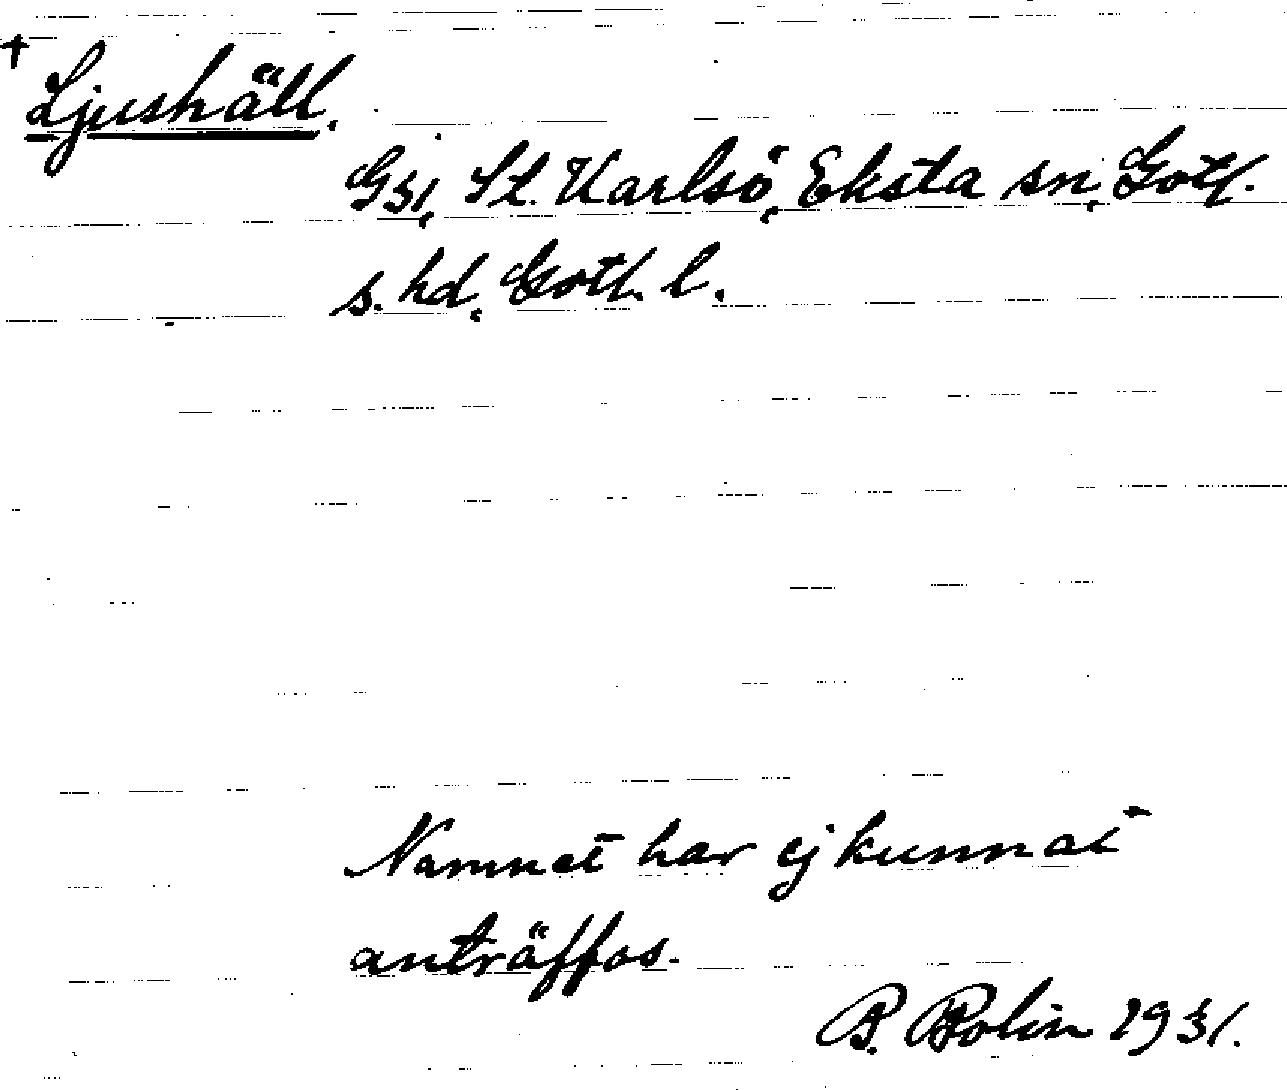 † Ljushäll.
G31, St. Karlsö, Eksta sn, Gotl.
s. hd, Gotl. l.
Namnet har ej kunnat
anträffas.
P. Bolin 1931.